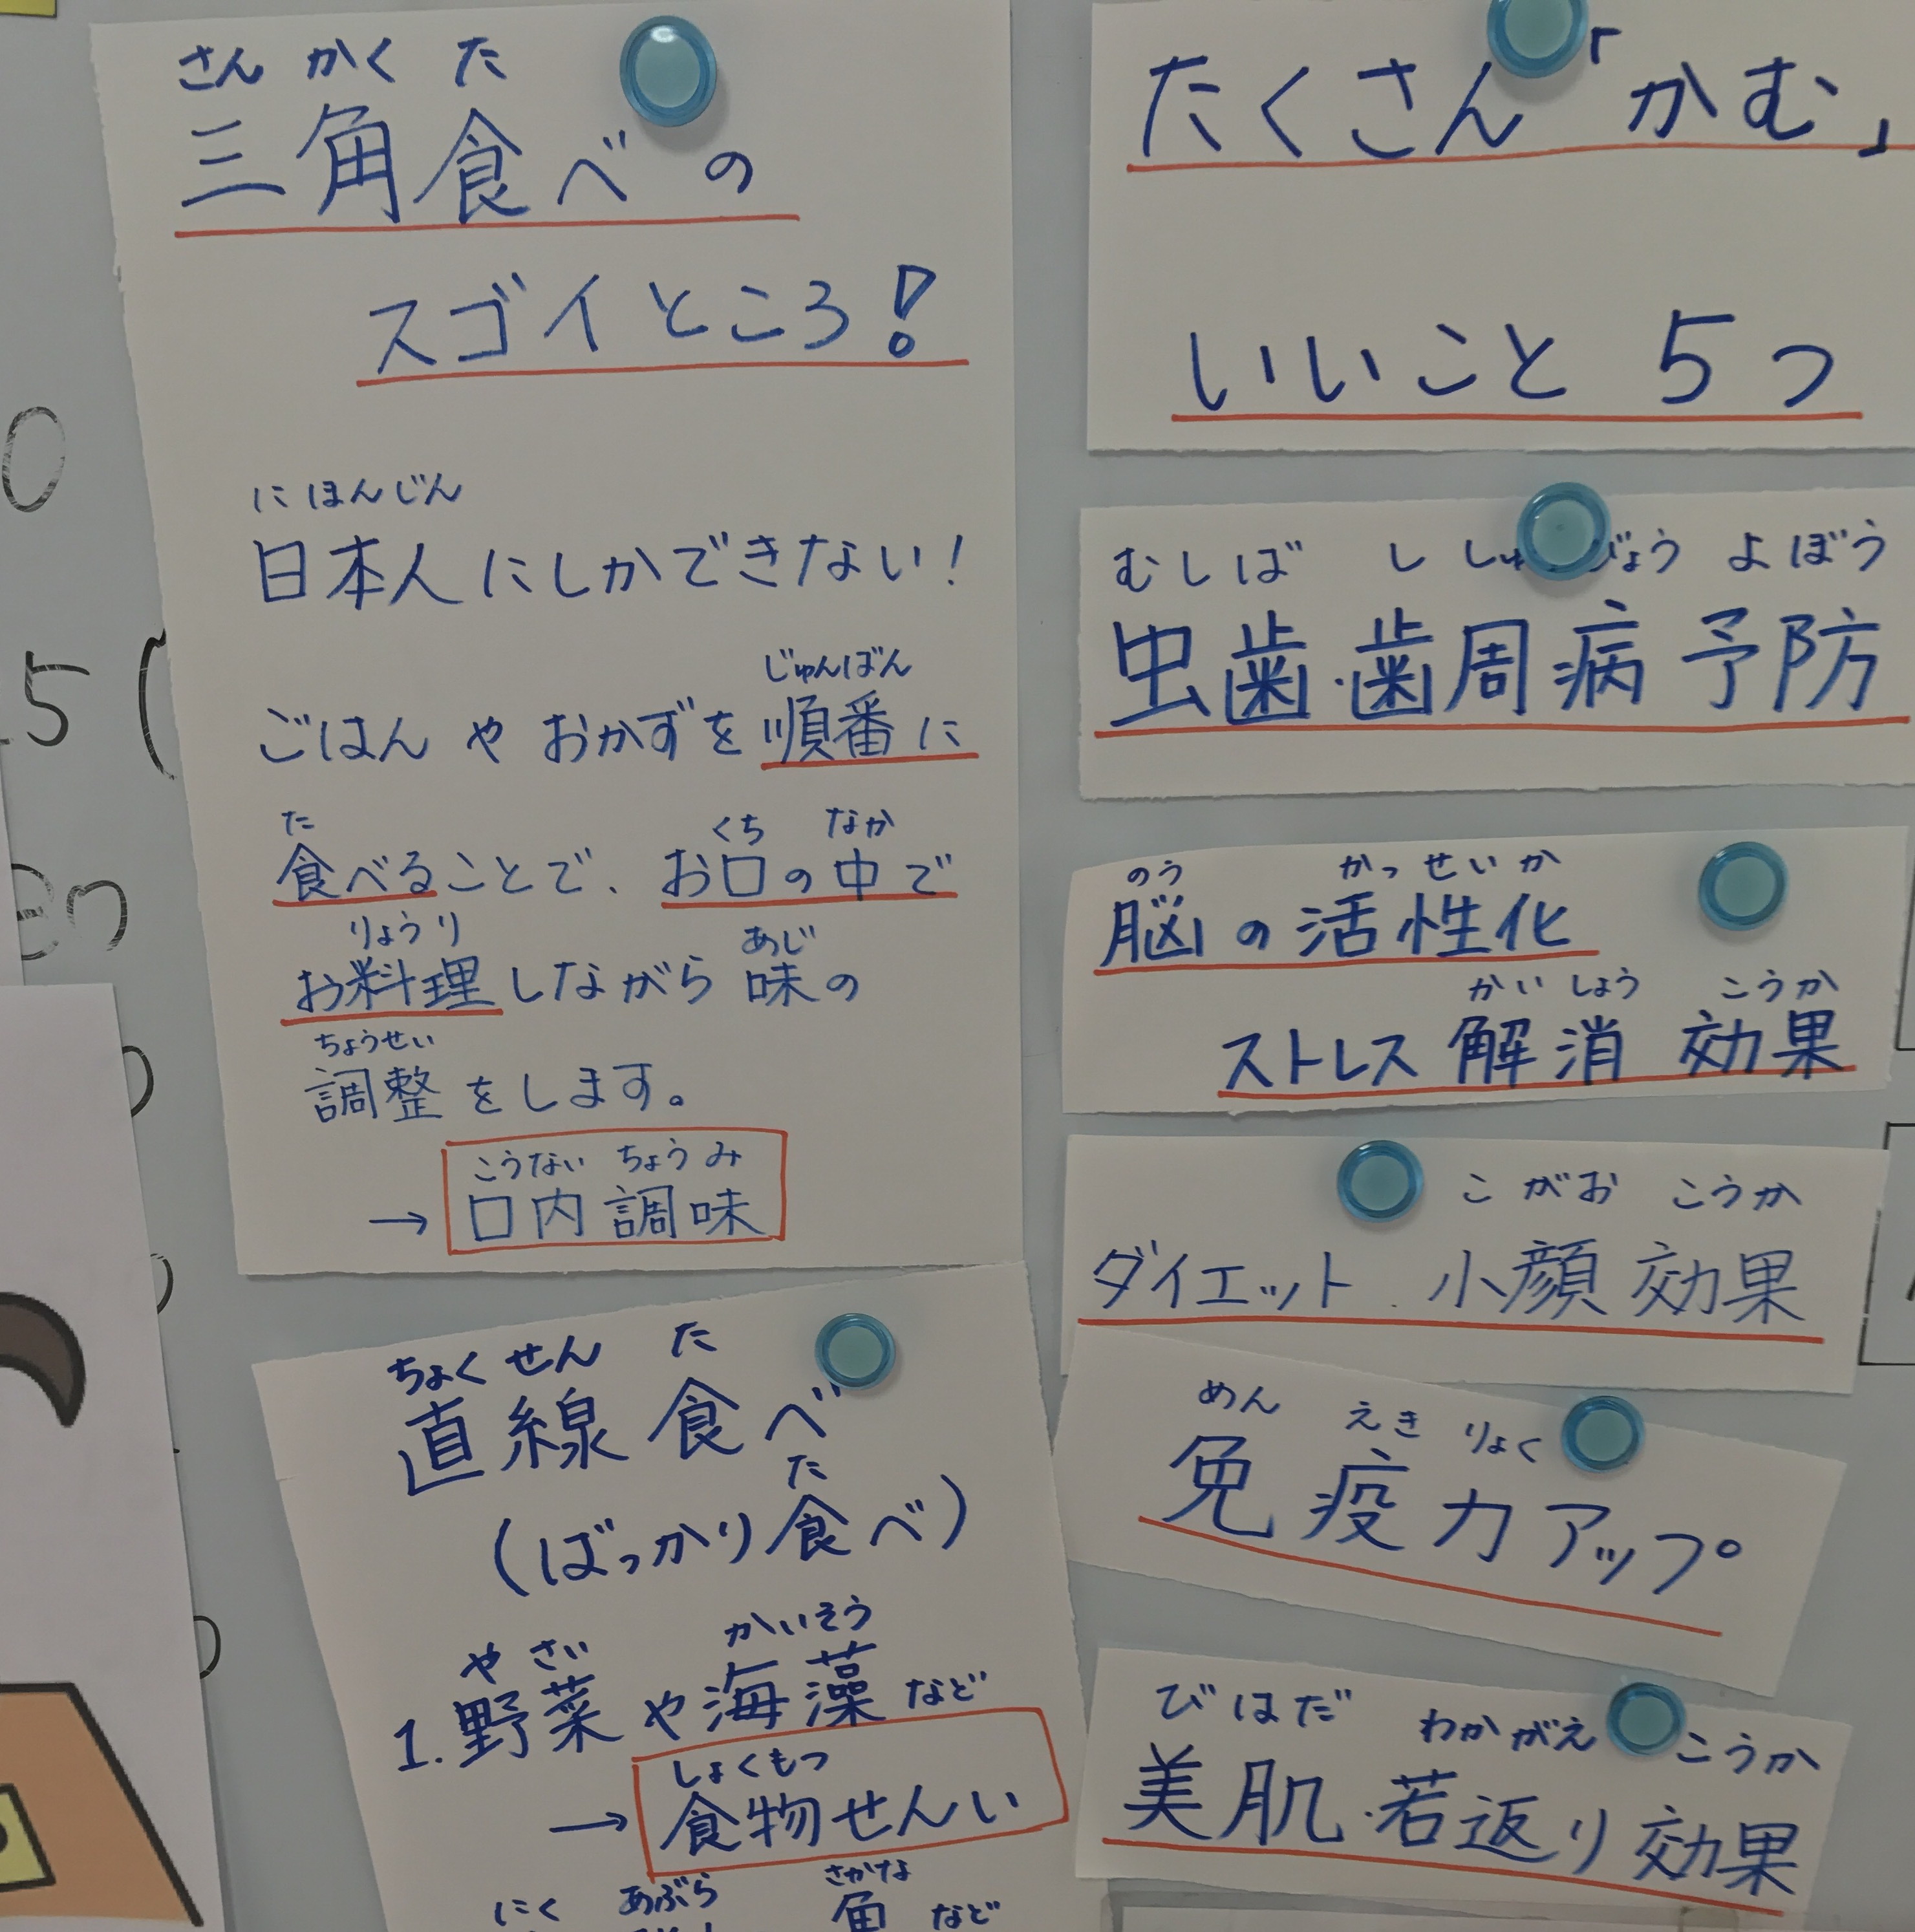 さん かく た
三角食べの
スゴイところ!
にほんじん
日本人にしかできない!
じゅんばん
ごはんやおかずを順番に
た くち なか
食べることで、お口の中で
りょうり あじ
お料理しながら味の
ちょうせい
調整をします。
こうない ちょうみ
→ 口内調味
ちょくせん た
直線食べ
た
(ばっかり食べ)
やさい かいそう
1. 野菜や海藻など
しょくもつ
→ 食物せんい
にく あぶら さかな
魚 など
たくさん「かむ」
いいこと 5つ
むしば し しゅ びょう よぼう
虫歯・歯周病予防
のう かっせいか
脳の活性化
かいしょう こうか
ストレス解消 効果
こがお こうか
ダイエット・小顔効果
めん えき りょく
免疫力アップ
びはだ わかがえ こうか
美肌・若返り効果
0
5 (
en